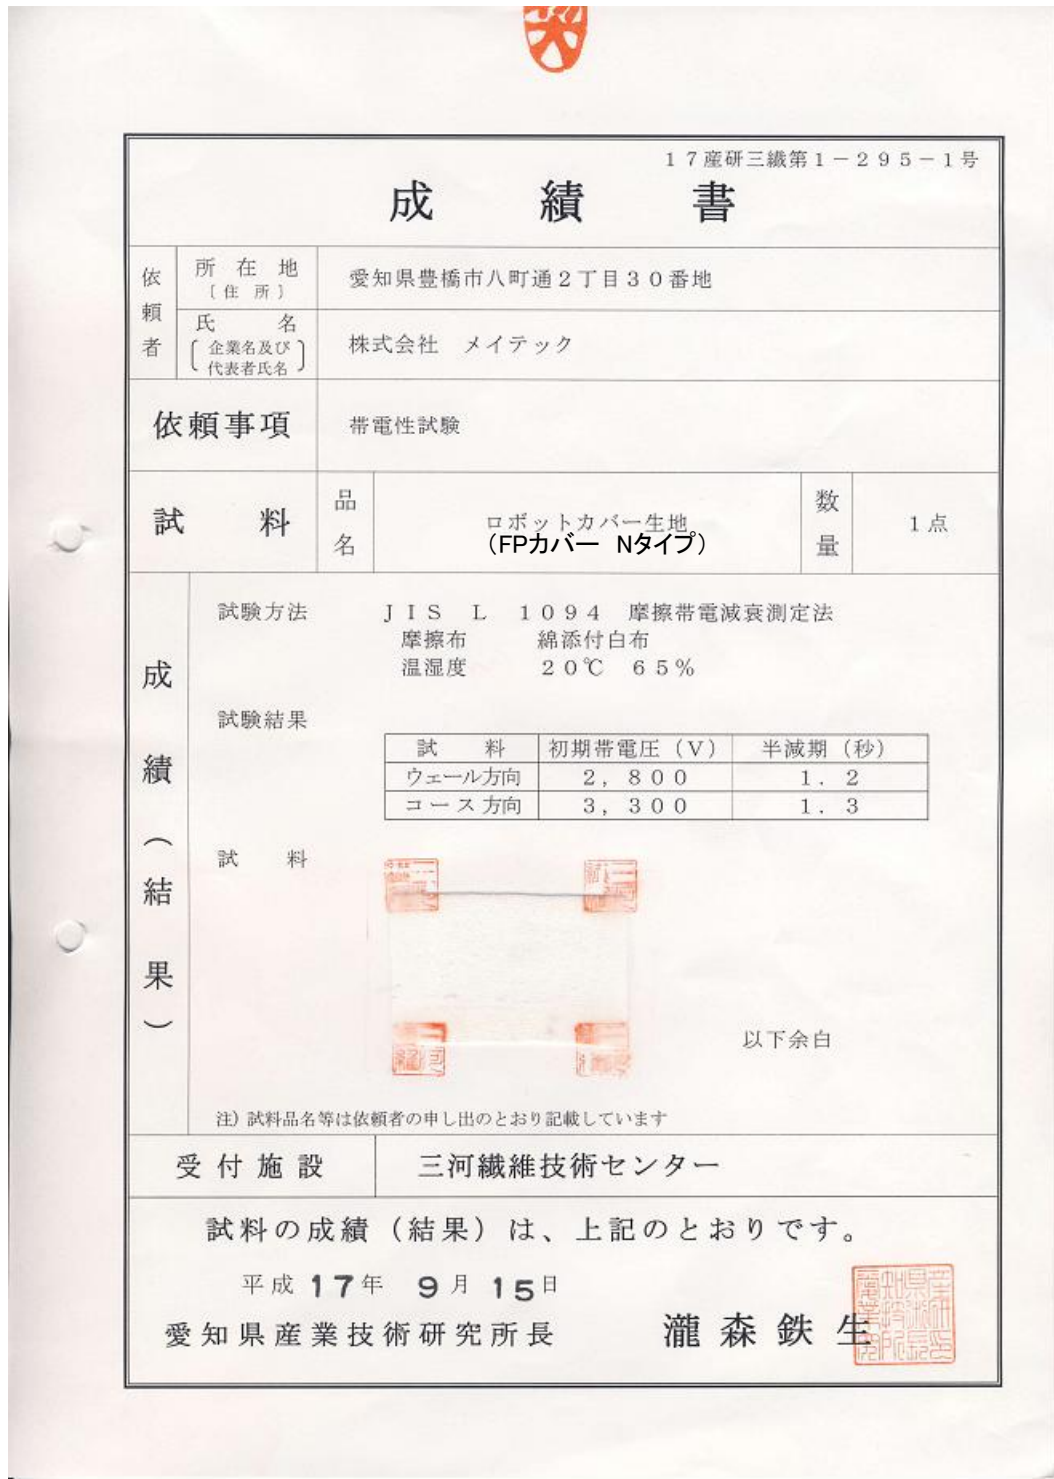 17産研三繊第1－295－1号
成績書
依頼者
所在地
〔住所〕
愛知県豊橋市八町通2丁目30番地
氏名
企業名及び
代表者氏名
株式会社 メイテック
依頼事項
帯電性試験
試料
品名
ロボットカバー生地
（FPカバー Nタイプ）
数量
1点
成績（結果）
試験方法 JIS L 1094 摩擦帯電減衰測定法
摩擦布 綿添付白布
温湿度 20℃ 65％
試験結果
試料 初期帯電圧（V） 半減期（秒）
ウェール方向 2，800 1．2
コース方向 3，300 1．3
試料
以下余白
注）試料品名等は依頼者の申し出のとおり記載しています
受付施設 三河繊維技術センター
試料の成績（結果）は、上記のとおりです。
平成17年 9月 15日
愛知県産業技術研究所長 瀧森鉄生